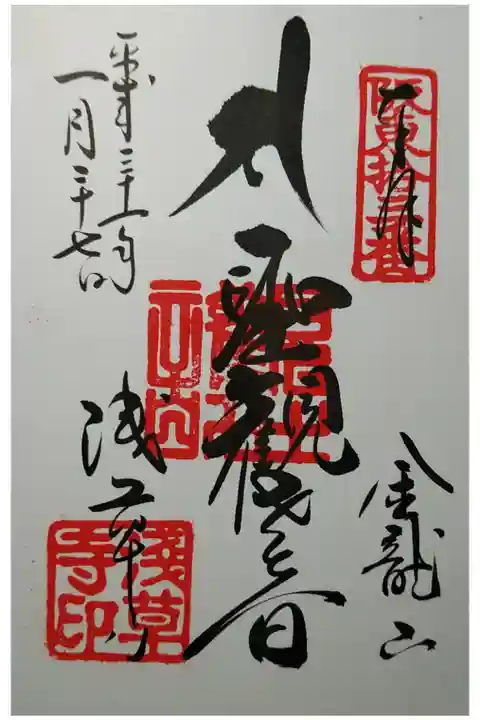 奉拝
阪東拾三番
金龍山
聖観世音
浅草寺
淺草
寺印
平成三十一年
一月二十七日